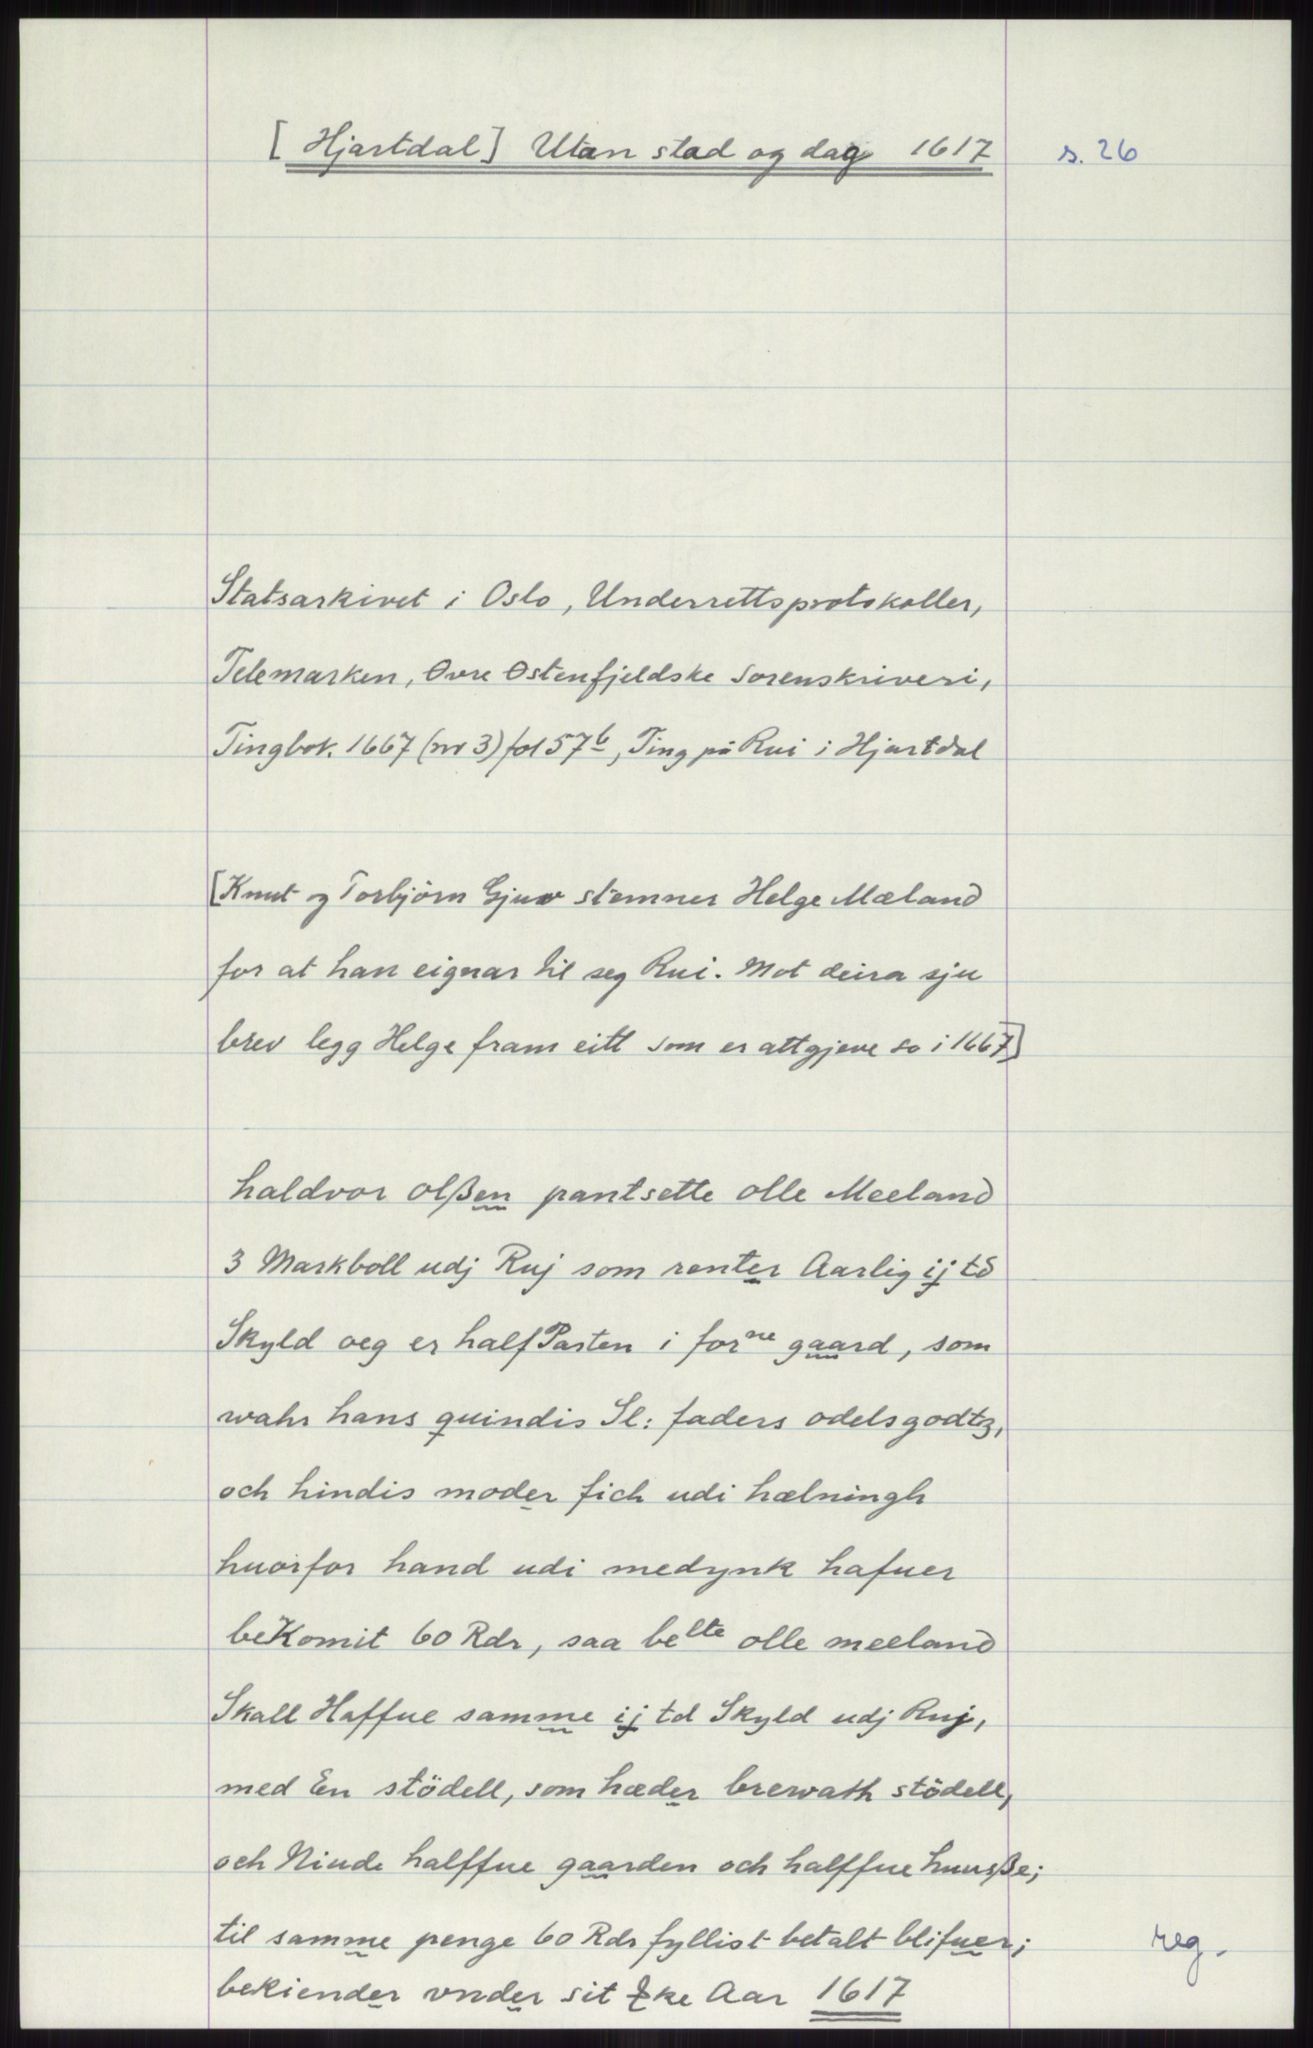 [Hjartdal] Utan stad og dag 1617 s. 26
Statsarkivet i Oslo, Underrettsprotokoller,
Telemarken, Øvre Østenfjeldske sorenskriveri,
Tingbok. 1667 (nr 3) fol 57b, Ting på Rui i Hjartdal
[Knut og Torbjörn Gjuv stemner Helge Mæland
for at han eignar til seg Rui. Mot deira sju
brev legg Helge fram eitt som er attgjeve so i 1667]
haldvor olßen pantsette olle Meeland
3 Markboll udj Ruj som renter Aarlig ij td
Skyld oeg er half Parten i forne gaard, som
wahr hans quindis Sl: faders odelsgodtz,
och hindis moder fich udi hælningh
huorfor hand udi medynk hafuer
beKomit 60 Rdr, saa belte olle meeland
Skall Haffue samme ij td Skyld udj Ruj,
med En stödell, som hæder brewath stödell,
och Niude halffue gaarden och halffue huusße;
til samme penge 60 Rdr fyllist betalt blifuer;
bekiender vnder sit ke Aar 1617
reg.